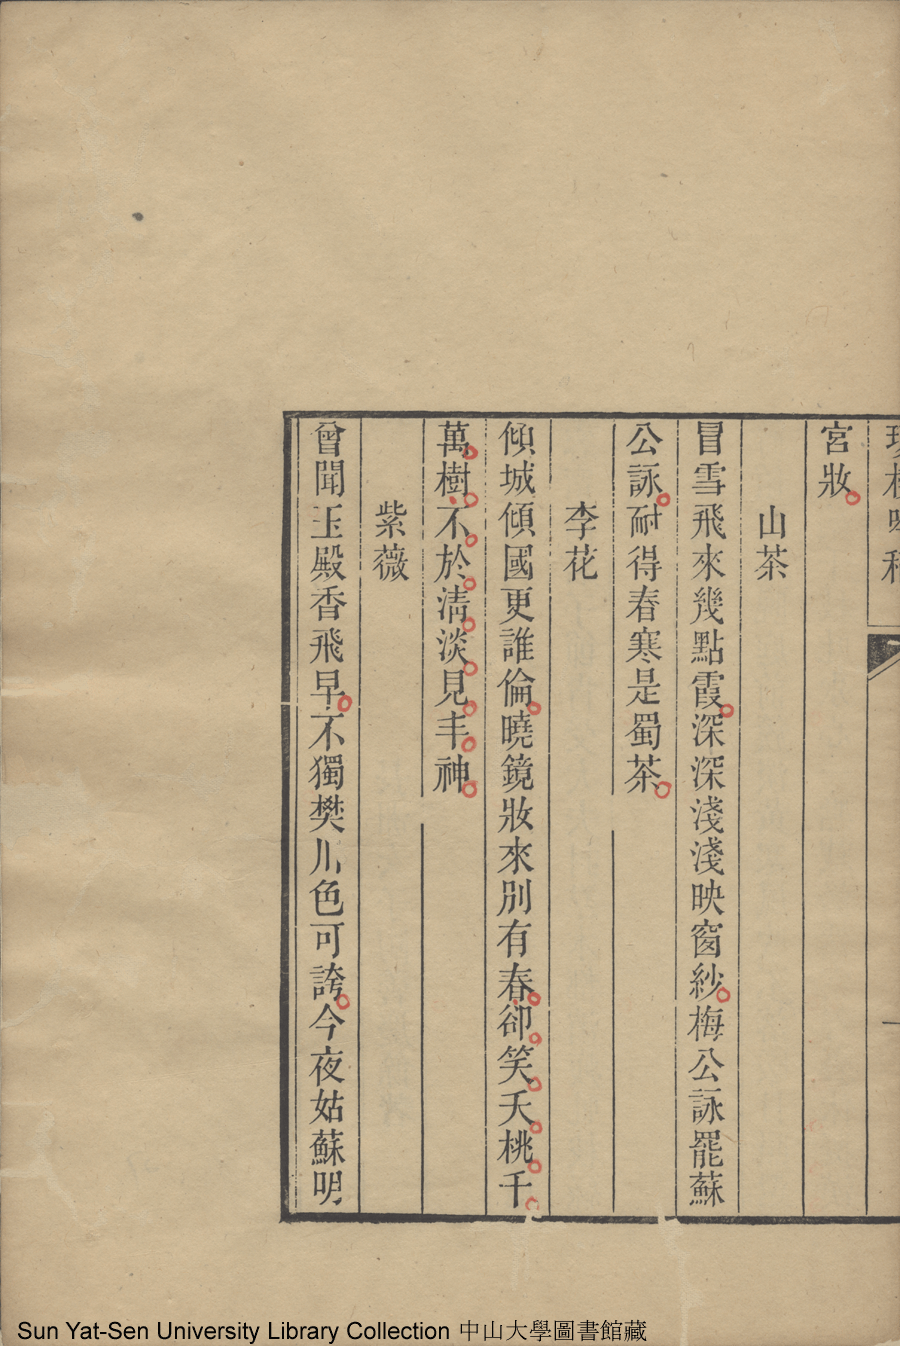 宮妝
山茶
冒雪飛來幾點霞深深淺淺映窗紗梅公詠罷蘇
公詠耐得春寒是蜀茶
李花
傾城傾國更誰倫曉鏡妝來別有春卻笑夭桃千
萬樹不於清淡見丰神
紫薇
曾聞玉殿香飛早不獨樊川色可誇今夜姑蘇明
Sun Yat-Sen University Library Collection 中山大學圖書館藏